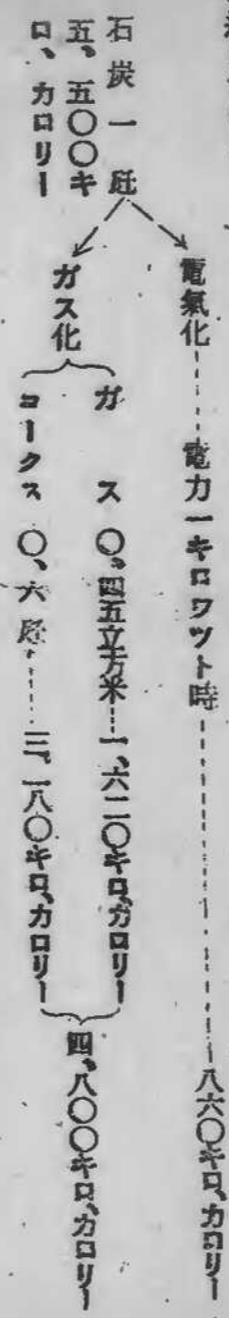 石炭一瓩
五、五〇〇キ
ロ、カロリー
電氣化……電力一キロワット時……八六〇キロ、カロリー
ガス化
ガス 〇、四五立方米……一、六二〇キロ、カロリー
コークス 〇、六瓩……三、一八〇キロ、カロリー
四、八〇〇キロ、カロリー